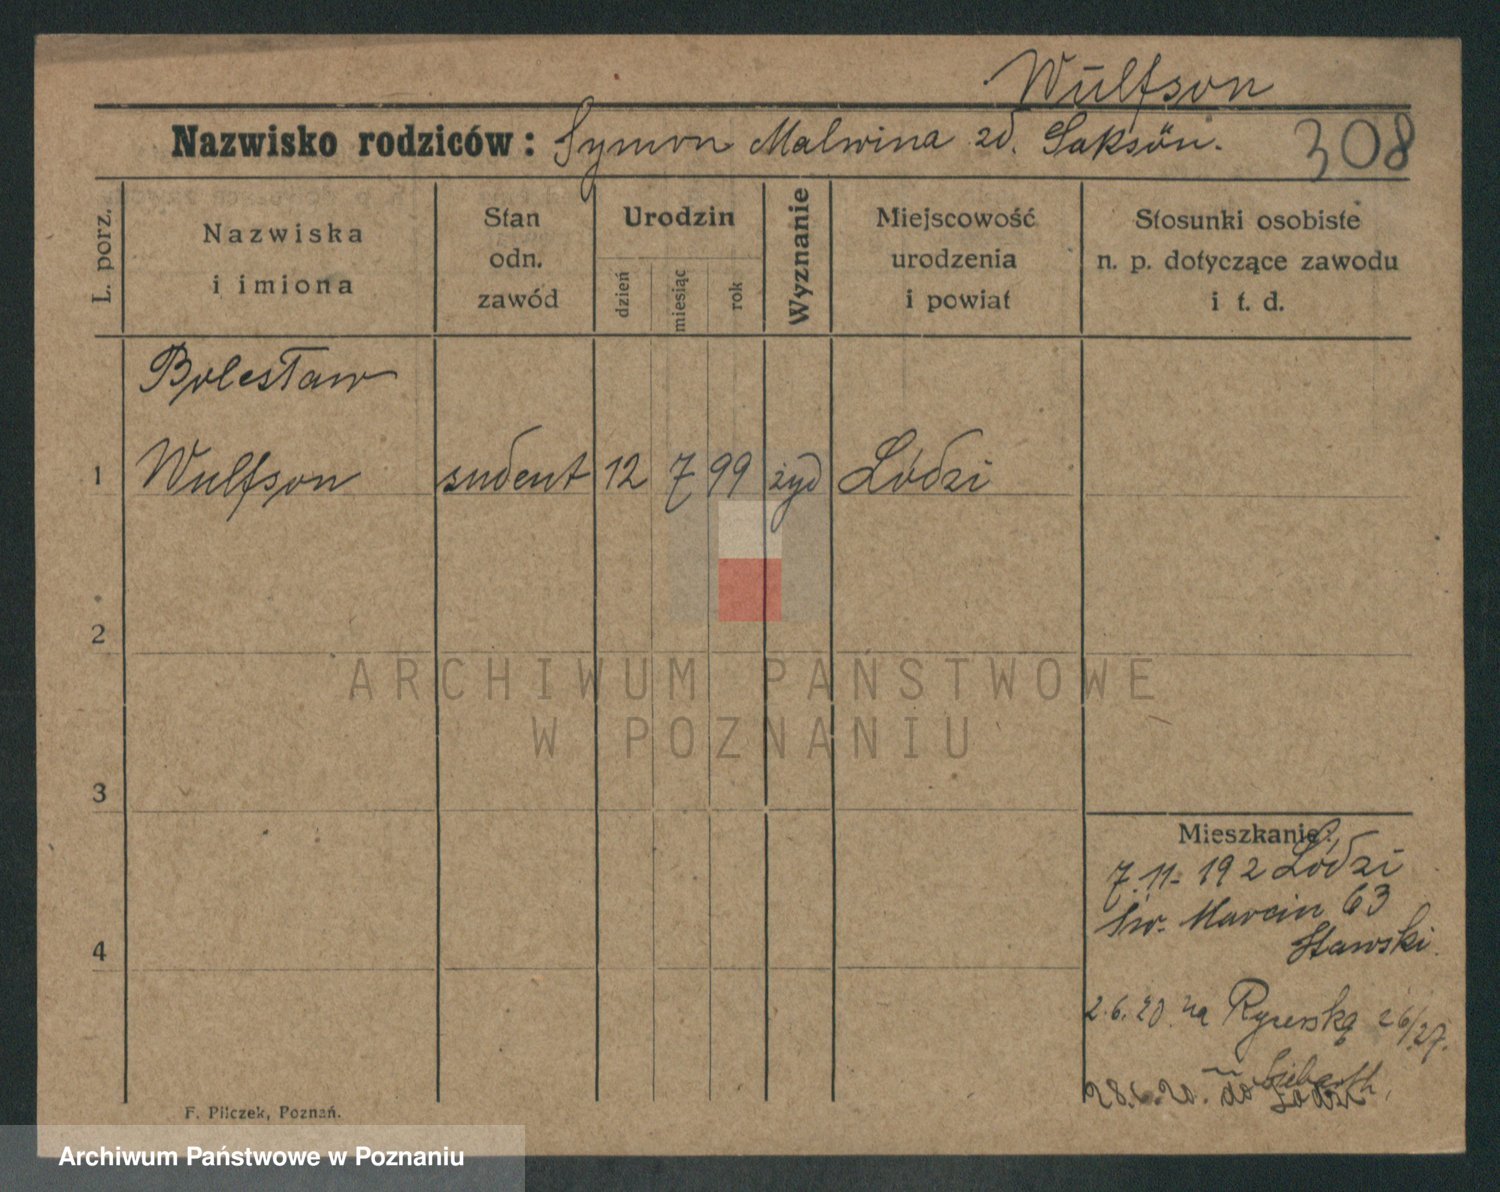 Wulfson
Nazwisko rodziców: Symon Malwina zd. Saksön.
308
L. porz.
Nazwiska
i imiona
Stan
odn.
zawód
Urodzin
dzień
miesiąc
rok
Wyznanie
Miejscowość
urodzenia
i powiat
Stosunki osobiste
n. p. dotyczące zawodu
i t. d.
Bolesław
1 Wulfson sudent 12 7 99 żyd Łódzi
2
ARCHIWUM PAŃSTWOWE
W POZNANIU
3
Mieszkanie:
7.11- 192 Łódzi
Św. Marcin 63
Stawski
4
2.6.20 na Rycerską 26/27.
28.6.20. do
F. Pilczek, Poznań.
Archiwum Państwowe w Poznaniu